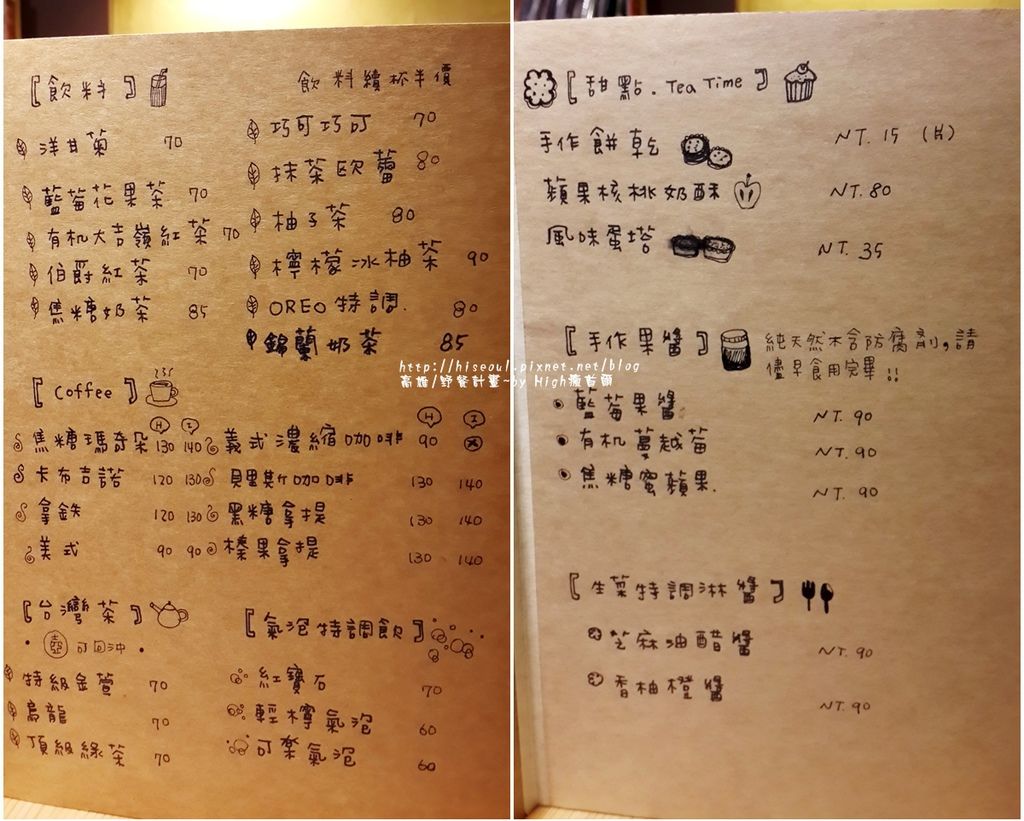 〖飲料〗
飲料續杯半價
洋甘菊 70
藍莓花果茶 70
有机大吉嶺紅茶 70
伯爵紅茶 70
焦糖奶茶 85
巧可巧可 70
抹茶歐蕾 80
柚子茶 80
檸檬冰柚茶 90
OREO特調 80
錦蘭奶茶 85
〖Coffee〗
H I
焦糖瑪奇朵 130 140
卡布吉諾 120 130
拿鉄 120 130
美式 90 90
H I
義式濃縮咖啡 90
貝里斯咖啡 130 140
黑糖拿提 130 140
榛果拿提 130 140
〖台灣茶〗
• 壺 可回沖 •
特級金萱 70
烏龍 70
頂級綠茶 70
〖氣泡特調飲〗
紅寶石 70
輕檸氣泡 60
可樂氣泡 60
〖甜點. Tea Time〗
手作餅乾 NT. 15 (片)
蘋果核桃奶酥 NT. 80
風味蛋塔 NT. 35
〖手作果醬〗
純天然不含防腐劑,請
儘早食用完畢!!
藍莓果醬 NT. 90
有机蔓越莓 NT. 90
焦糖蜜蘋果. NT. 90
〖生菜特調淋醬〗
芝麻油醋醬 NT. 90
香柚橙醬 NT. 90
http://hiseoul.pixnet.net/blog
高雄/野餐計畫~by High瘋首爾